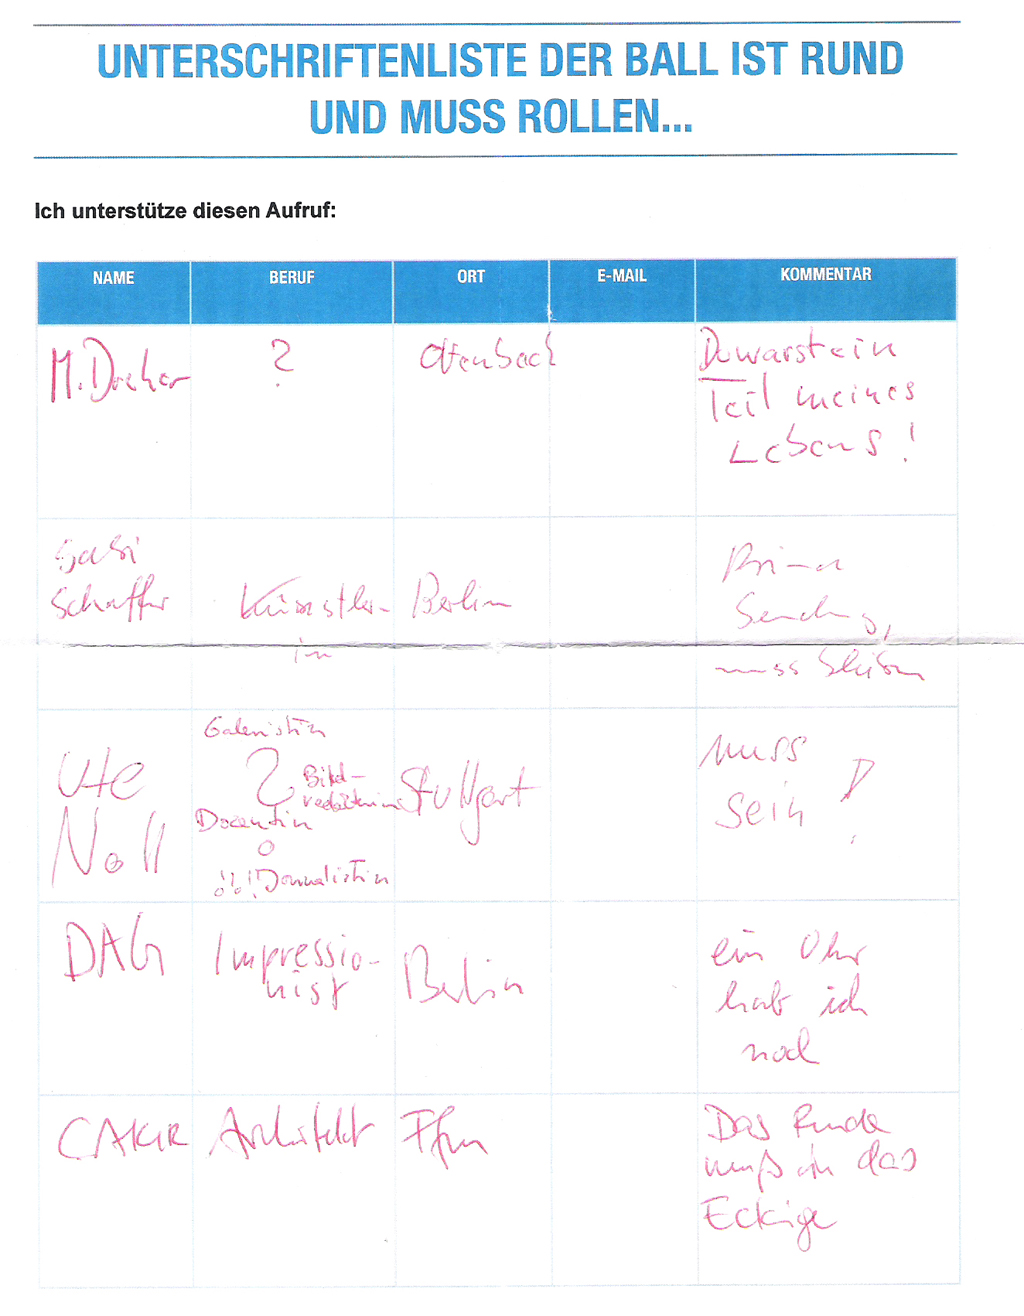 UNTERSCHRIFTENLISTE DER BALL IST RUND
UND MUSS ROLLEN...
Ich unterstütze diesen Aufruf:
NAME BERUF ORT E-MAIL KOMMENTAR
M. Dreher ? Offenbach
Teil meines
Lebens!
Gabi
Schaffer
Künstler-
in
Berlin
Prima
Sendung,
muss bleiben
Ute
Noll
Galeristin
?
Bild-
redakteurin
Docentin
o
Journalistin
Stuttgart
Muss
sein!
DAG
Impressio-
nist
Berlin
ein Ohr
hab ich
noch
CAKIR Architekt Ffm
Das Runde
muß in das
Eckige